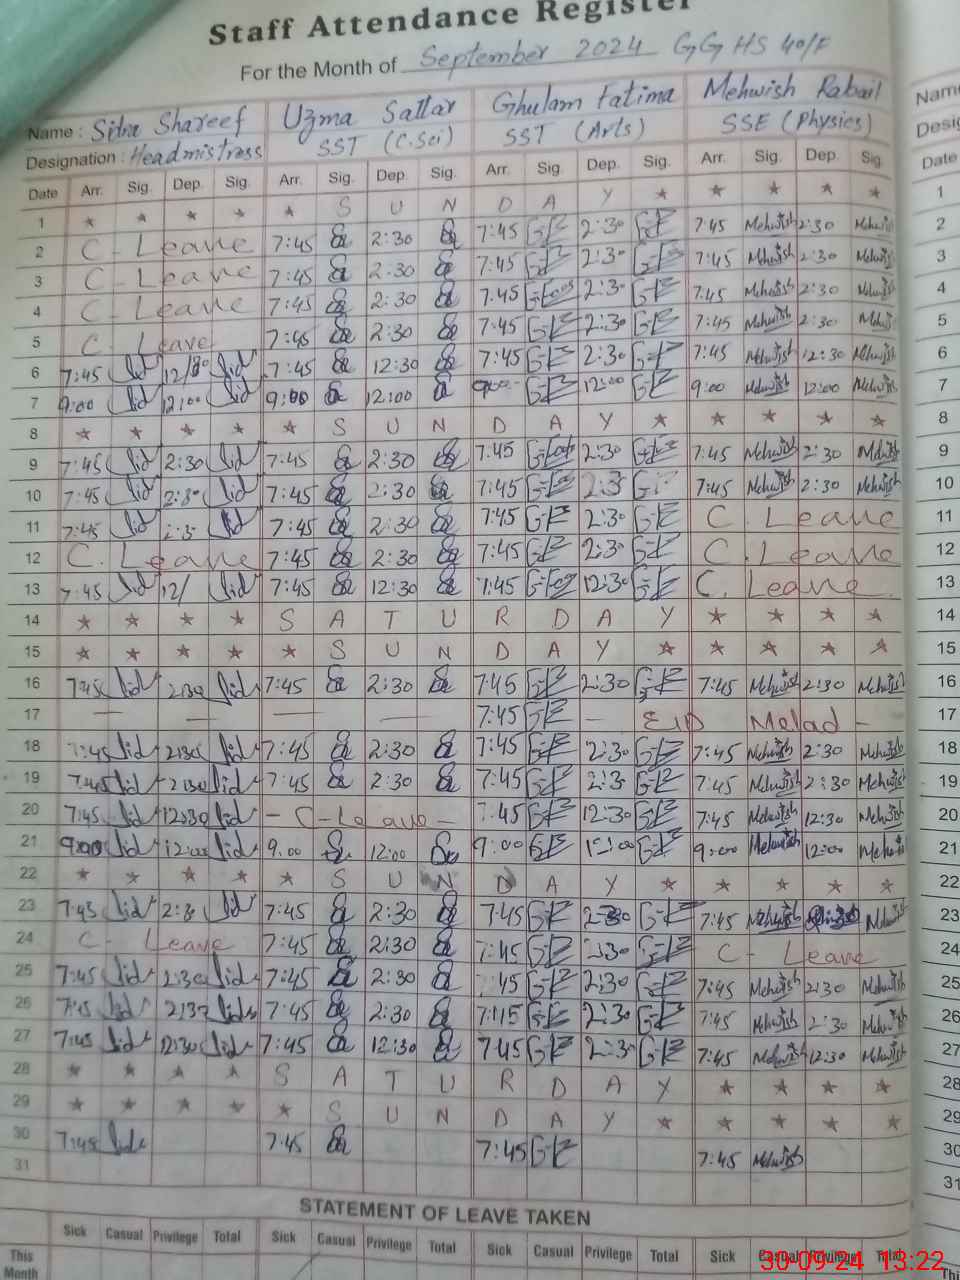 Staff Attendance Register
For the Month of September 2024 GGHS 40/F
Name : Sitra Shareef Uzma Sattar Ghulam Fatima Mehwish Rabail Name
Designation : Headmistress SST (C.Sci) SST (Arts) SSE (Physics)
Date Arr. Sig. Dep. Sig. Arr. Sig. Dep. Sig. Arr. Sig. Dep. Sig. Arr. Sig. Dep. Sig. Date
1 * * * * * S U N D A Y * * * * * 1
2 C - Leave 7:45 2:30 7:45 2:30 7:45 Mehwish 2:30 Mehwish 2
3 C - Leave 7:45 2:30 7:45 2:30 7:45 Mehwish 2:30 Mehwish 3
4 C - Leave 7:45 2:30 7:45 2:30 7:45 Mehwish 2:30 Mehwish 4
5 C - Leave 7:45 2:30 7:45 2:30 7:45 Mehwish 2:30 Mehwish 5
6 7:45 12/30 7:45 12:30 7:45 2:30 7:45 Mehwish 12:30 Mehwish 6
7 9:00 12:00 9:00 12:00 9:00 12:00 9:00 Mehwish 12:00 Mehwish 7
8 * * * * * S U N D A Y * * * * * 8
9 7:45 2:30 7:45 2:30 7:45 2:30 7:45 Mehwish 2:30 Mehwish 9
10 7:45 2:30 7:45 2:30 7:45 2:3 7:45 Mehwish 2:30 Mehwish 10
11 7:45 7:45 2:30 7:45 2:30 C. Leave 11
12 C. Leave 7:45 2:30 7:45 2:30 C. Leave 12
13 7:45 12/ 7:45 12:30 7:45 12:30 C. Leave 13
14 * * * * S A T U R D A Y * * * * 14
15 * * * * * S U N D A Y * * * * * 15
16 7:45 2:30 7:45 2:30 7:45 2:30 7:45 Mehwish 2:30 Mehwish 16
17 — — — — 7:45 – EID Melad – 17
18 7:45 2:30 7:45 2:30 7:45 2:30 7:45 Mehwish 2:30 Mehwish 18
19 7:45 2:30 7:45 2:30 7:45 2:3 7:45 Mehwish 2:30 Mehwish 19
20 7:45 12:30 – C - Leave – 7:45 12:30 7:45 Mehwish 12:30 Mehwish 20
21 9:00 12:00 9:00 12:00 9:00 12:00 9:00 Mehwish 12:00 Mehwish 21
22 * * * * * S U N D A Y * * * * * 22
23 7:45 2:30 7:45 2:30 7:45 2:30 7:45 Mehwish 2:30 Mehwish 23
24 C - Leave 7:45 2:30 7:45 2:30 C - Leave 24
25 7:45 2:30 7:45 2:30 7:45 2:30 7:45 Mehwish 2:30 Mehwish 25
26 7:45 2:30 7:45 2:30 7:45 2:30 7:45 Mehwish 2:30 Mehwish 26
27 7:45 12:30 7:45 12:30 7:45 2:30 7:45 Mehwish 12:30 Mehwish 27
28 * * * * S A T U R D A Y * * * * 28
29 * * * * * S U N D A Y * * * * * 29
30 7:45 7:45 7:45 7:45 Mehwish 30
31 31
STATEMENT OF LEAVE TAKEN
Sick Casual Privilege Total Sick Casual Privilege Total Sick Casual Privilege Total Sick Casual Privilege Total
This Month
30-09-24 13:22